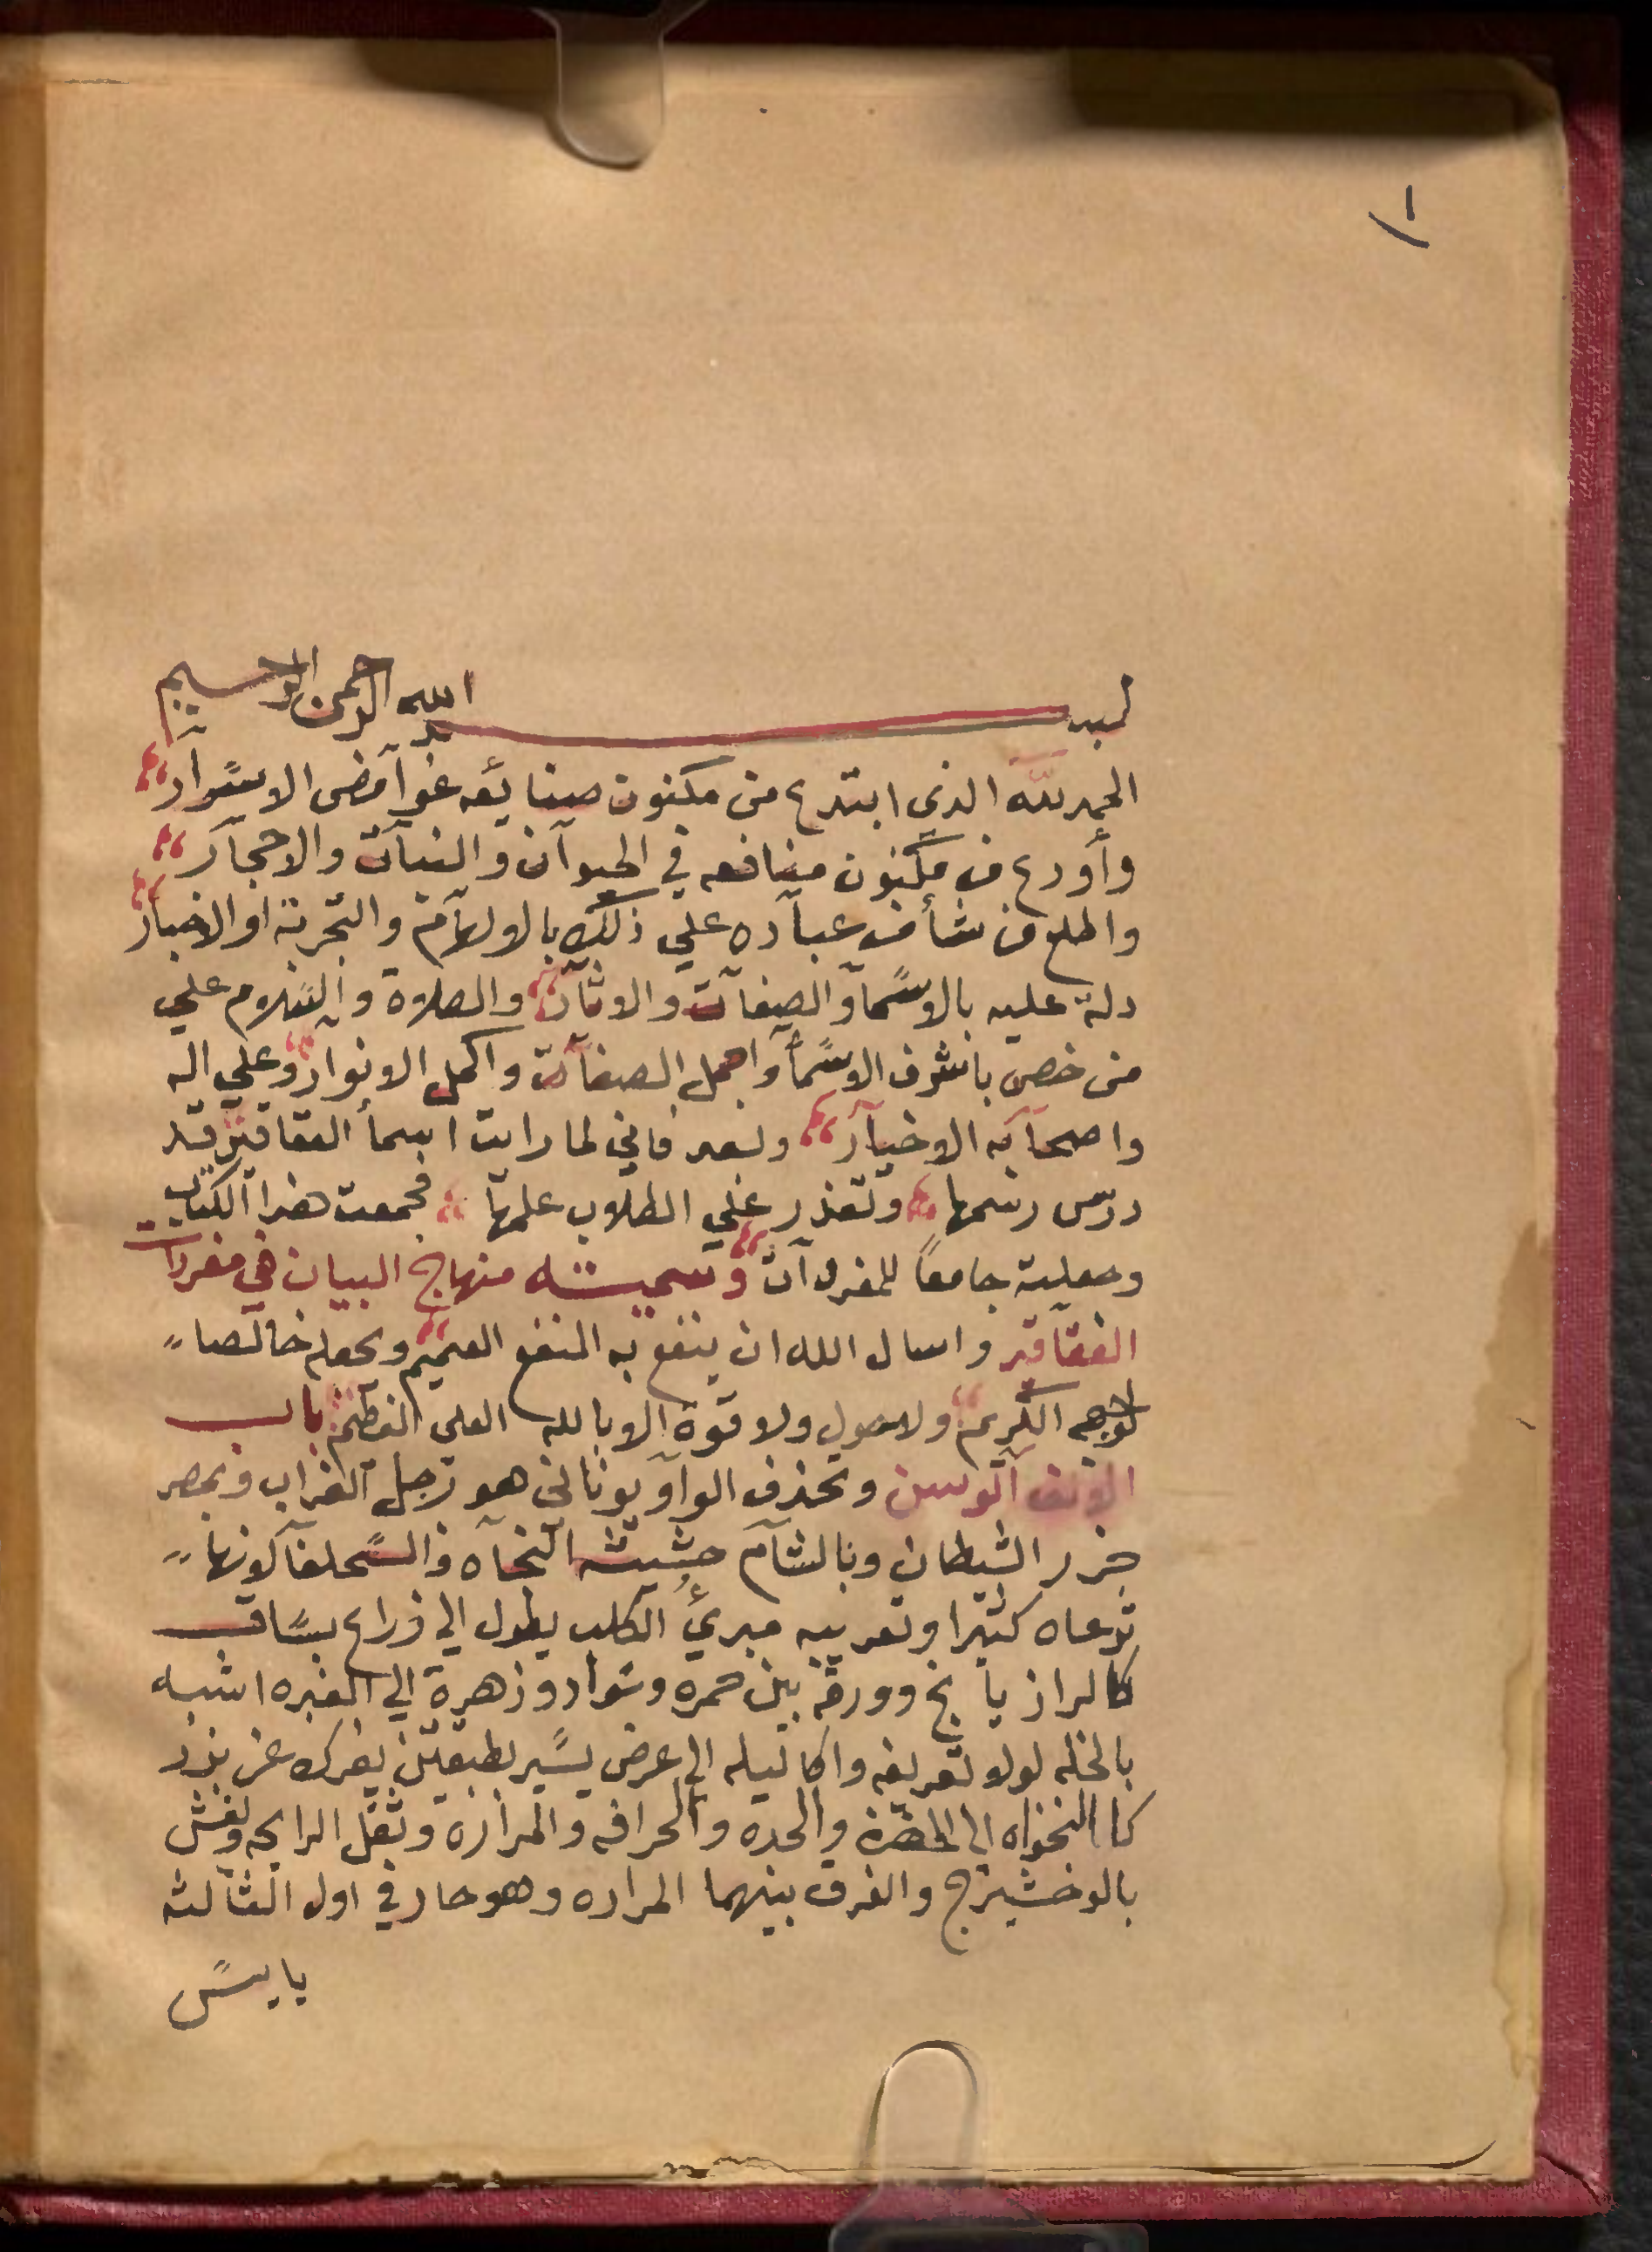 ١
بسم الله الرحمن الرحيم
الحمد لله الذي ابتدع من مكنون صنايعه غوآمض الاسرآر
وأودع من مكنون منافعه في الحيوآن والنبآت والاحجآر
واطلع من شأ من عبآده علي ذلك بالالهآم والتجربة او الاخبار
دلة عليه بالاسمآ والصفآت والاثآر والصلاة والسلام علي
من خص باشرف الاسمآ واجمل الصفآت واكمل الانوار وعلي اله
واصحآبه الاخيآر وبعد فاني لما رايت اسمأ العقاقير قد
درس رسمها وتعذر علي الطلاب علمها فجمعت هذا الكتاب
وجعلته جامعاً للمفردآت وسميته منهاج البيان في مفردات
العقآقير واسال الله ان ينفع به المنفع العميم ويجعله خالصا
لوجهه الكريم ولا حول ولا قوة الا بالله العلى العظيم باب
الالف آلوسن وتحذف الوآو يوناني هو رجل الغراب وبمصر
جزر الشيطان وبالشآم حشيشة النجآه والسحلفآ لكونها
ترعاه كثيرا وتعريبه مبرئ الكلب يطول الي ذراع بساق
كالرازيانج وورقه بين حمره وسواد وزهرة الي الغبره اشبه
بالخله لولا تفريغه واكاليله الي عرض يسير بطبقتين يفرك عن بزر
كالنخواه الي الخضرة والحده والحرافه والمرارة وثقل الرايحه ويغش
بالوخشيزج والفرق بينهما المراره وهو حار في اول الثالثه
يابس